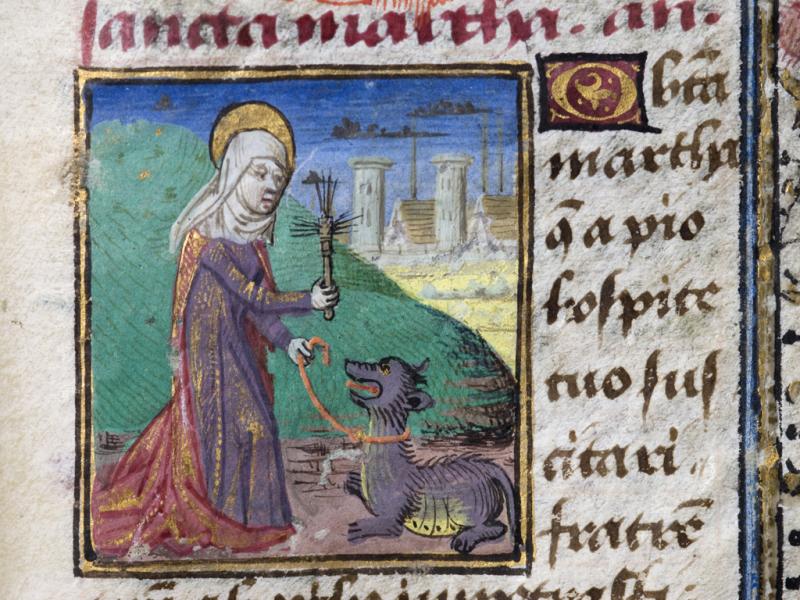 sancta martha. an.
O btā
martha
q̄ a pio
hospite
tuo sus
citari
fratrē